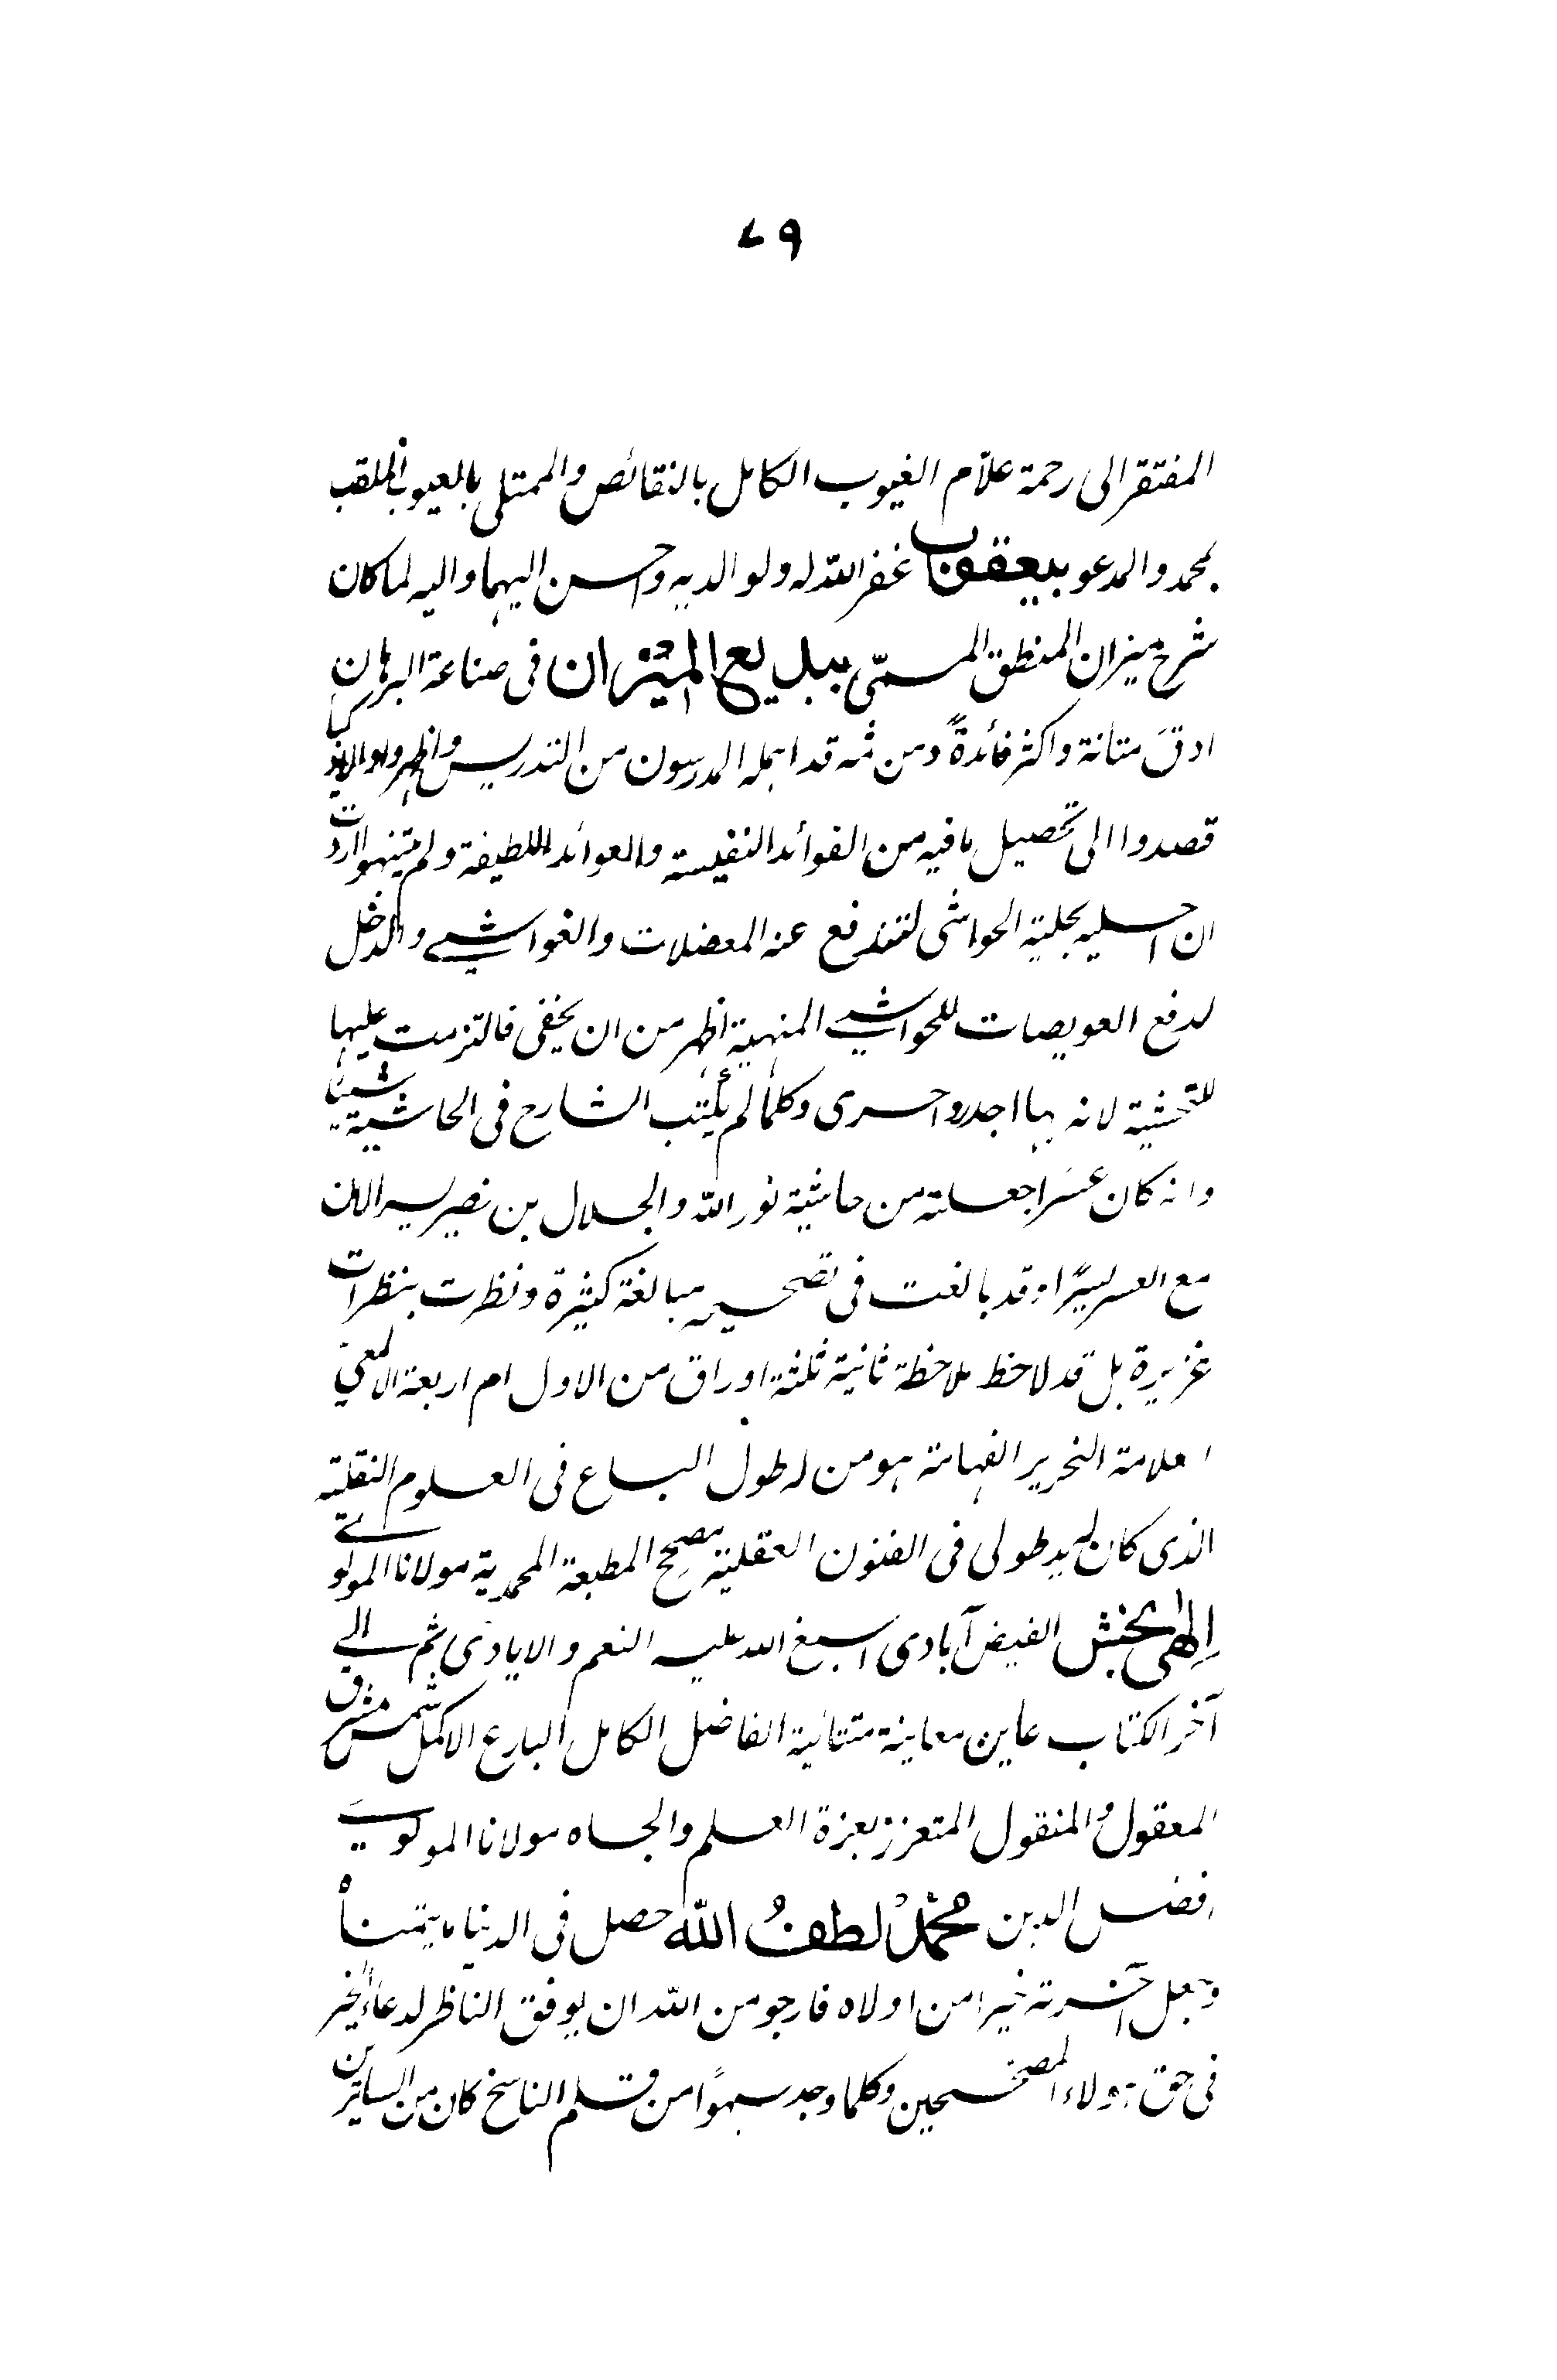 ٧٩
المفتقر الى رحمة علّام الغيوب الكامل بالنقائص والممتلى بالعيوب الملقب
بمحمد والمدعو بيعقوب غفر اللّٰه له ولوالديه واحسن اليهما واليه لما كان
شرح ميزان المنطق المسمّى ببديع الميزان فى صناعة البرهان
ادقَ متانة واكثر فائدةً ومن ثمه قد اهمله المدرسون من التدريس
قصدوا الى تحصيل ما فيه من الفوائد النفيسة والعوائد اللطيفة ولم ينتهوا اردت
ان احليه بحلية الحواشى لتندفع عنه المعضلات والغواشى والدخل
لدفع العويصات للحواشى المنهية اظهر من ان يخفى فالتزمت عليها
للتحشية لانه بها اجدر واحرى وكلما لم يكتب الشارح فى الحاشية شيئا
وانه كان عسرا جعلته من حاشية نور اللّٰه والجلال بن نصير ليسر الان
مع العسر يسرًا وقد بالغت فى تصحيحه مبالغة كثيرة ونظرت بنظرات
غزيرة بل قد لاحظ ملاحظة ثانية ثلثة اوراق من الاول ام اربعة الالمعى
العلامة النحرير الفهامة هو من له طول الباع فى العلوم النقلية
الذى كان له يد طولى فى الفنون العقلية مصحح المطبعة المحمدية مولانا المولوى
إلهى بخش الفيض آبادى اسبغ اللّٰه عليه النعم والايادى ثم الى
آخر الكتاب عاين معاينة متتانية الفاضل الكامل البارع الاكمل شمس مشرق
المعقول والمنقول المتعزز بعزة العلم والجاه مولانا المولوى
افضل الدين محمد لطف اللّٰه حصل فى الدنيا ما يتمناه
وجعل آخرته خيرا من اولاه فارجو من اللّٰه ان يوفق الناظر لدعاء الخير
فى حق هؤلاء المصححين وكلما وجد سهوًا من قلم الناسخ كان من الساترين